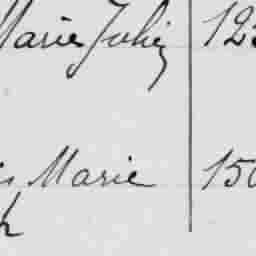 Marie Julie 123
is Marie 150
h